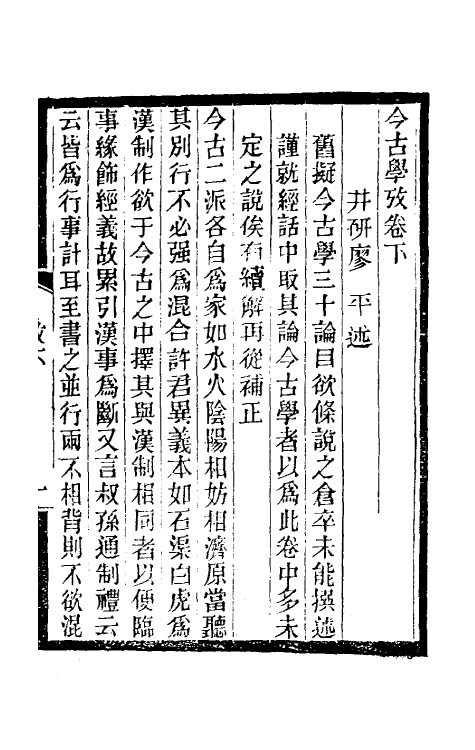 今古學攷卷下
井研廖　平述
舊擬今古學三十論目欲條說之倉卒未能撰述
謹就經話中取其論今古學者以爲此卷中多未
定之說俟有續解再從補正
今古二派各自爲家如水火陰陽相妨相濟原當聽
其別行不必强爲混合許君異義本如石渠白虎爲
漢制作欲于今古之中擇其與漢制相同者以便臨
事緣飾經義故累引漢事爲斷又言叔孫通制禮云
云皆爲行事計耳至書之並行兩不相背則不欲混